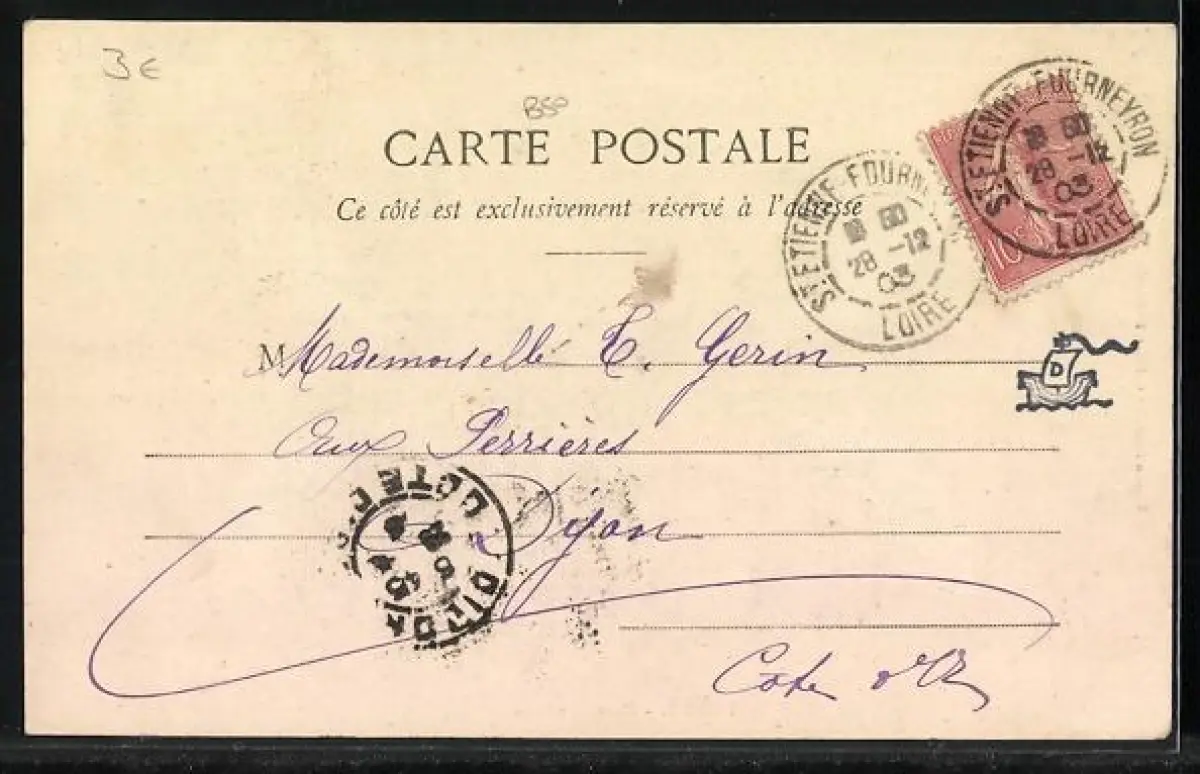 3€
B50
CARTE POSTALE
Ce côté est exclusivement réservé à l'adresse
ST ETIENNE-FOURNEYRON
28 -12
03
LOIRE
ST ETIENNE-FOURNEYRON
28 -12
03
LOIRE
10c
D
M Mademoiselle E. Gerin
Aux Perrières
Dijon
DIJON
Cote d'Or